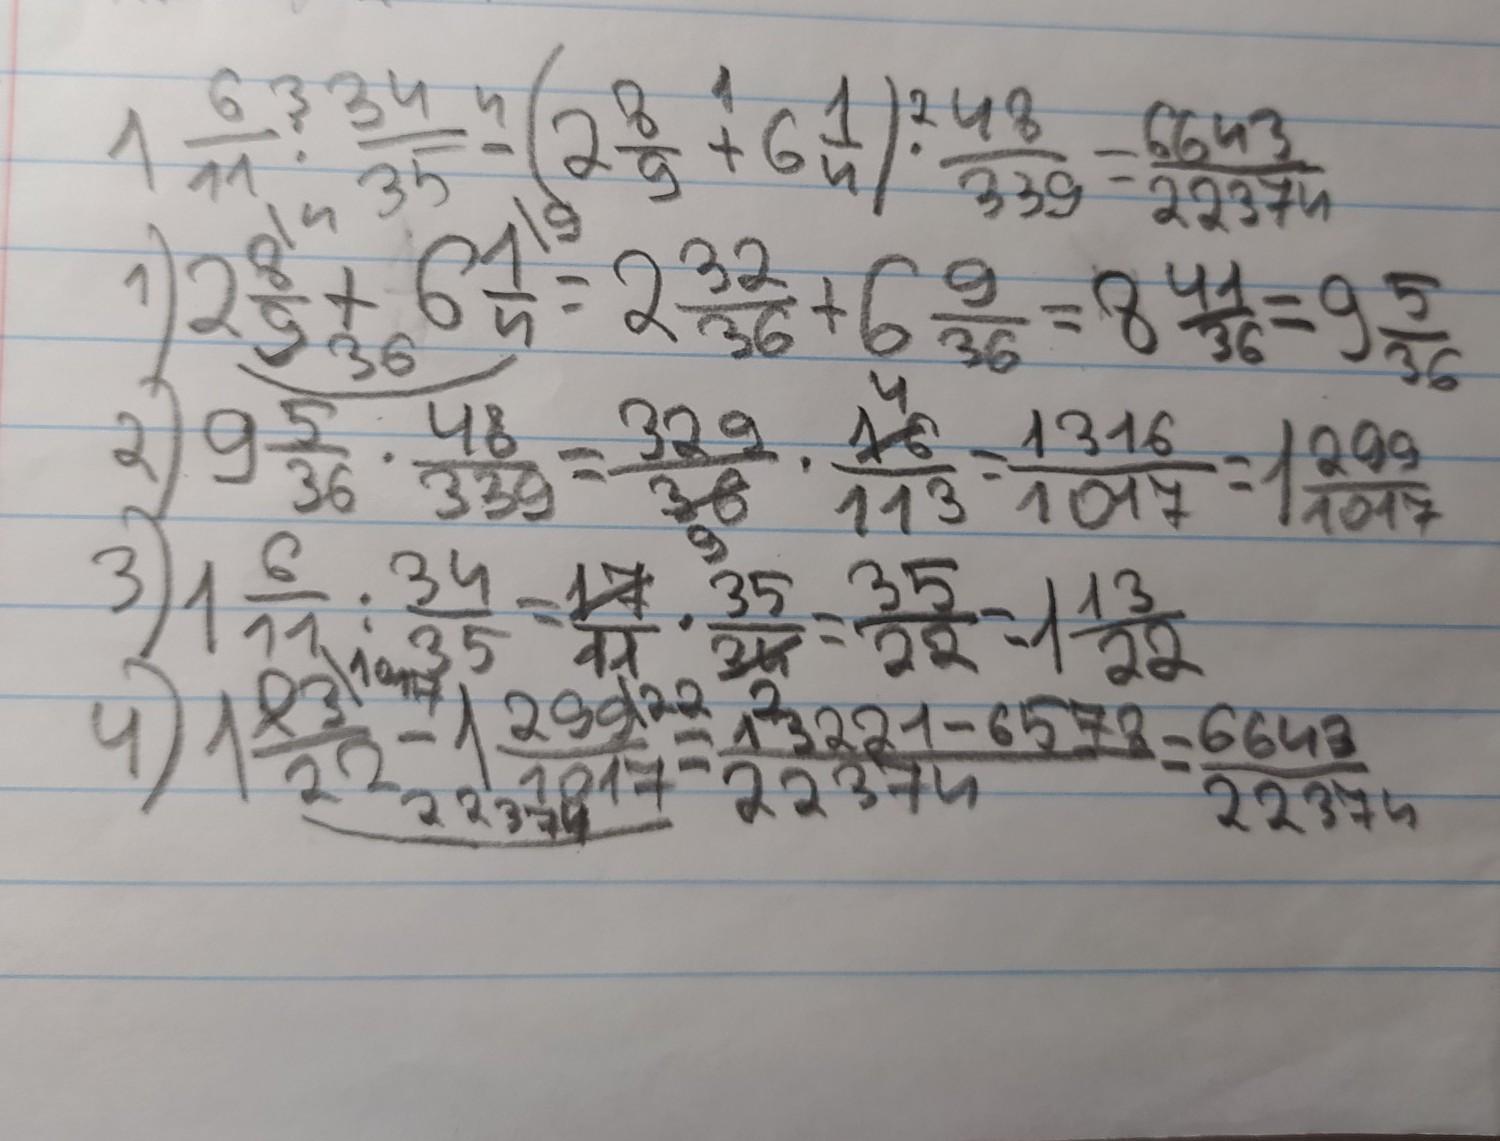 1 6/11 : 34/35 - (2 8/9 + 6 1/4) · 48/339 = 6643/22374
1) 2 8/9 \4 + 6 1/4 \9 = 2 32/36 + 6 9/36 = 8 41/36 = 9 5/36
36
2) 9 5/36 · 48/339 = 329/36 · 16/113 = 1316/1017 = 1 299/1017
3) 1 6/11 : 34/35 = 17/11 · 35/34 = 35/22 = 1 13/22
4) 1 13/22 \1017 - 1 299/1017 \22 = 13221-6578/22374 = 6643/22374
22374